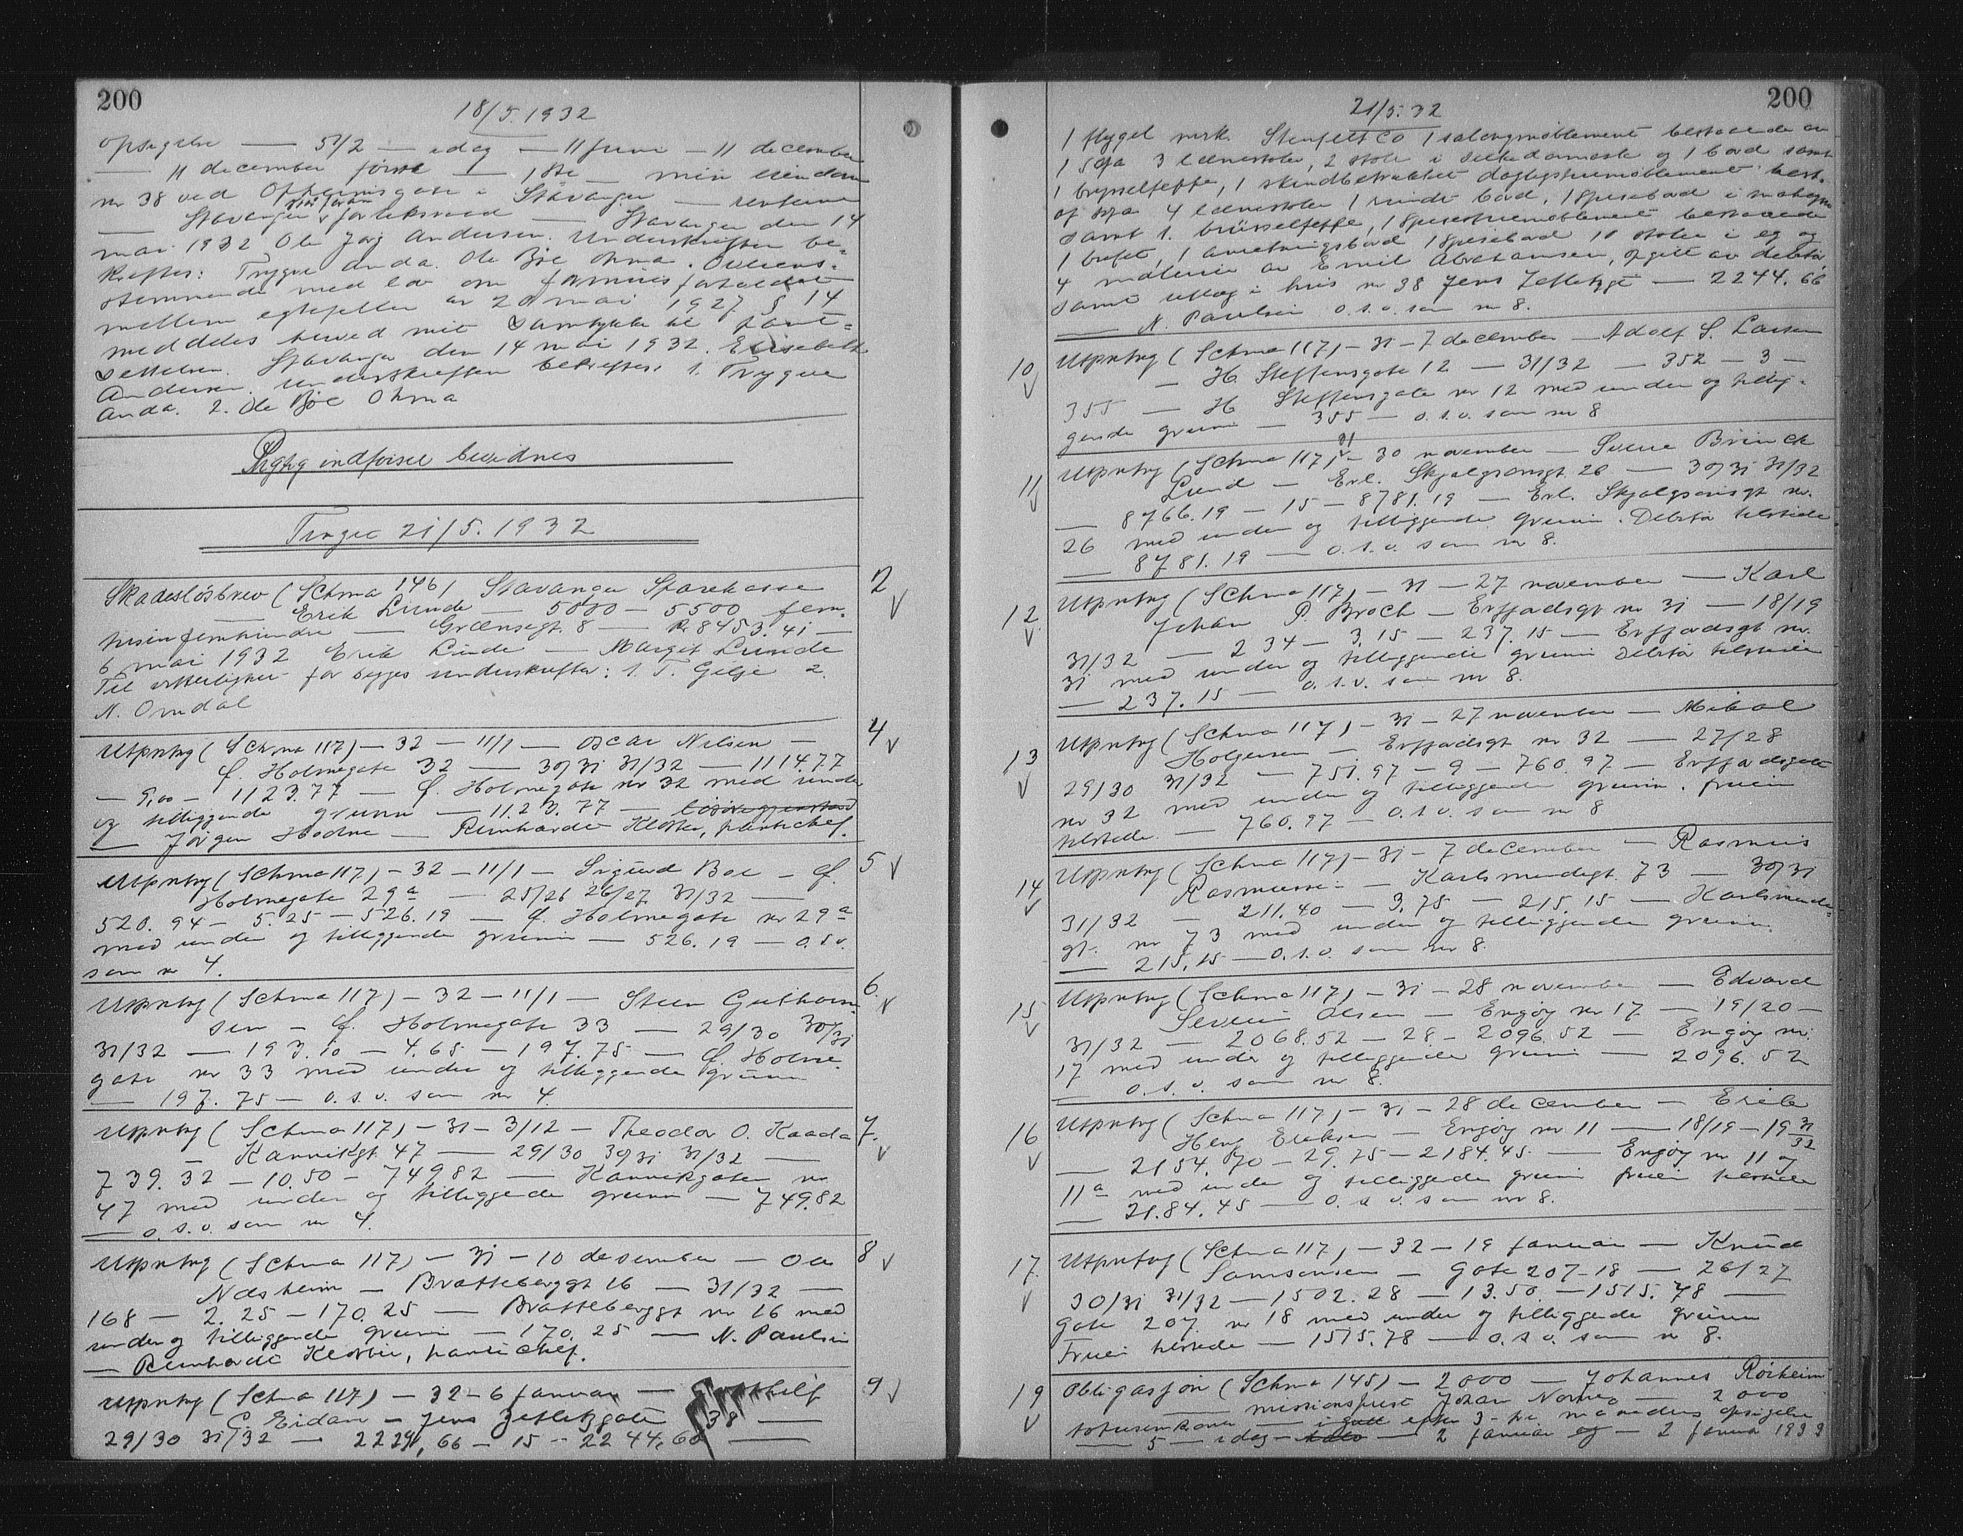 200
18/5.1932
opsigelse — 5½ — idag — 11 juni — 11 december
— 11 december først — 1ste — min eiendom
nr 38 ved Opheimsgate i Stavanger — renterne
— Stavanger forliksraad — Stavanger den 14
mai 1932 Ole Jørg Andersen. Underskriften be-
kreftes: Trygve Anda. Ole Boe Ohma. Overens-
stemmende med lov om formuesforholdet
mellem egtefeller av 20 mai 1927 § 14
meddeles herved mit samtykke til pant-
settelsen. Stavanger den 14 mai 1932. Elisabeth
Andersen. Underskriften bekreftes: 1. Trygve
Anda. 2. Ole Boe Ohma
Rigtig indførsel bevidnes
Tinget 21/5.1932
Skadesløsbrev (Schma 146) Stavanger Sparekasse 2
— Erik Lunde — 5000 — 5500 fem-
tusinfemhundre — Grænsegt. 8 — Kr 8453.41 —
6 mai 1932 Erik Lunde — Marget Lunde
Til vitterlighet for begges underskrifter: 1. T. Gilje 2.
N. Omdal
Utpntg (Schma 117) — 32 — 11/1 — Oscar Nilsen — 4
Q. Holmegate 32 — 30/31 31/32 — 1114.77
— 9,00 — 1123.77 — Q. Holmegate nr 32 med under
og tilliggende grunn — 1123.77 — løsøregjenstand
— Jørgen Hodne — Reinhardt Kloster, pantechef.
Utpntg (Schma 117) — 32 — 11/1 — Sigurd Boe — Q. 5
Holmegate 29a — 25/26 26/27 31/32 —
520.94 — 5.25 — 526.19 — Q. Holmegate nr 29a
med under og tilliggende grunn — 526.19 — o.s.v.
som nr 4.
Utpntg (Schma 117) — 32 — 11/1 — Steen Guthorm- 6.
sen — Q. Holmegate 33 — 29/30 30/31
31/32 — 193.10 — 4.65 — 197.75 — Q. Holme-
gate nr 33 med under og tilliggende grunn
— 197.75 — o.s.v. som nr 4.
Utpntg (Schma 117) — 31 — 3/12 — Theodor O. Kaada 7.
— Kannikgt 47 — 29/30 30/31 31/32 —
739.32 — 10.50 — 749.82 — Kannikgaten nr
47 med under og tilliggende grunn — 749.82
— o.s.v. som nr 4.
Utpntg (Schma 117) — 31 — 10 desember — Ole 8
Nesheim — Bratteberggt 16 — 31/32 —
168 — 2.25 — 170.25 — Bratteberggt nr 16 med
under og tilliggende grunn — 170.25 — N. Paulsen
— Reinhardt Kloster, pantechef.
Utpntg (Schma 117) — 32 — 6 januar — 9
G. Eidam — Jens Zetlitzgate 38 —
29/30 31/32 — 2229,66 — 15 — 2244.66 —
21/5.32
200
1 flygel mrk. Steufelt Co 1 salongmøblement bestaaende av
1 sofa 3 lænestoler, 2 stole i silkedamask og 1 bord samt
1 brysselteppe, 1 skindbetrukket dagligstuemøblement best.
af sofa 4 lænestoler 1 rundt bord, 1 spisebord i mahogni
samt 1. brüsselteppe, 1 spisestuemøblement bestaaende
1 bufet, 1 anretningsbord 1 spisebord 10 stoler i eg og
4 malerier av Emil Abrahamsen, opgitt av debitor
samt utlæg i hus nr 38 Jens Zetlitzgt — 2244.66
— N. Paulsen o.s.v. som nr 8.
10 Utpntg (Schma 117) — 31 — 7 december — Adolf S. Larsen
— H. Steffensgate 12 — 31/32 — 352 — 3 —
355 — H. Steffensgate nr 12 med under og tillig-
gende grunn — 355 — o.s.v. som nr 8
11 Utpntg (Schma 117) 31 — 30 november — Svene Brinck
Lund — Erl. Skjalgsonsgt 26 — 30/31 31/32
— 8766.19 — 15 — 8781.19 — Erl. Skjalgsonsgt nr.
26 med under og tilliggende grunn. Debitor tilstede
— 8781.19 — o.s.v. som nr 8.
12. Utpntg (Schma 117) — 31 — 27 november — Karl
Johan P. Broch — Erfjordsgt nr 31 — 18/19
31/32 — 234 — 3.15 — 237.15 — Erfjordsgt nr.
31 med under og tilliggende grunn Debitor tilstede
— 237.15 — o.s.v. som nr 8.
13 Utpntg (Schma 117) — 31 — 27 november — Mikal
Holgersen — Erfjordsgt nr 32 — 27/28
29/30 31/32 — 751.97 — 9 — 760.97 — Erfjordsgate
nr 32 med under og tilliggende grunn. fruen
tilstede — 760.97 — o.s.v. som nr 8
14 Utpntg (Schma 117) — 31 — 7 december — Rasmus
Rasmussen — Karlsmindegt. 73 — 30/31
31/32 — 211.40 — 3.75 — 215.15 — Karlsminde-
gt. nr 73 med under og tilliggende grunn.
— 215.15 — o.s.v. som nr 8.
15 Utpntg (Schma 117) — 31 — 28 november — Edvard
Severin Olsen — Engøy nr 17 — 19/20 —
31/32 — 2068.52 — 28. — 2096.52 — Engøy nr.
17 med under og tilliggende grunn — 2096.52
— o.s.v. som nr 8.
16 Utpntg (Schma 117) — 31 — 28 december — Erik
Henr. Eriksen — Engøy nr 11 — 18/19 — 19 31/32
— 2154.70 — 29.75 — 2184.45 — Engøy nr 11 og
11a med under og tilliggende grunn fruen tilstede
— 2184.45 — o.s.v. som nr 8.
17. Utpntg (Schma 117) — 32 — 19 januar — Knud
Samsonsen — Gate 207 — 18 — 26/27
30/31 31/32 — 1502.28 — 13.50 — 1515.78 —
Gate 207 nr 18 med under og tilliggende grunn
Fruen tilstede — 1515.78 — o.s.v. som nr 8.
19 Obligasjon (Schma 145) — 2000 — Johannes Rørheim
— missionsprest Johan Nome — 2000
totusenkroner — efter 3- tre maaneders opsigelse
— 5 — idag — — 2 januar og — 2 januar 1933